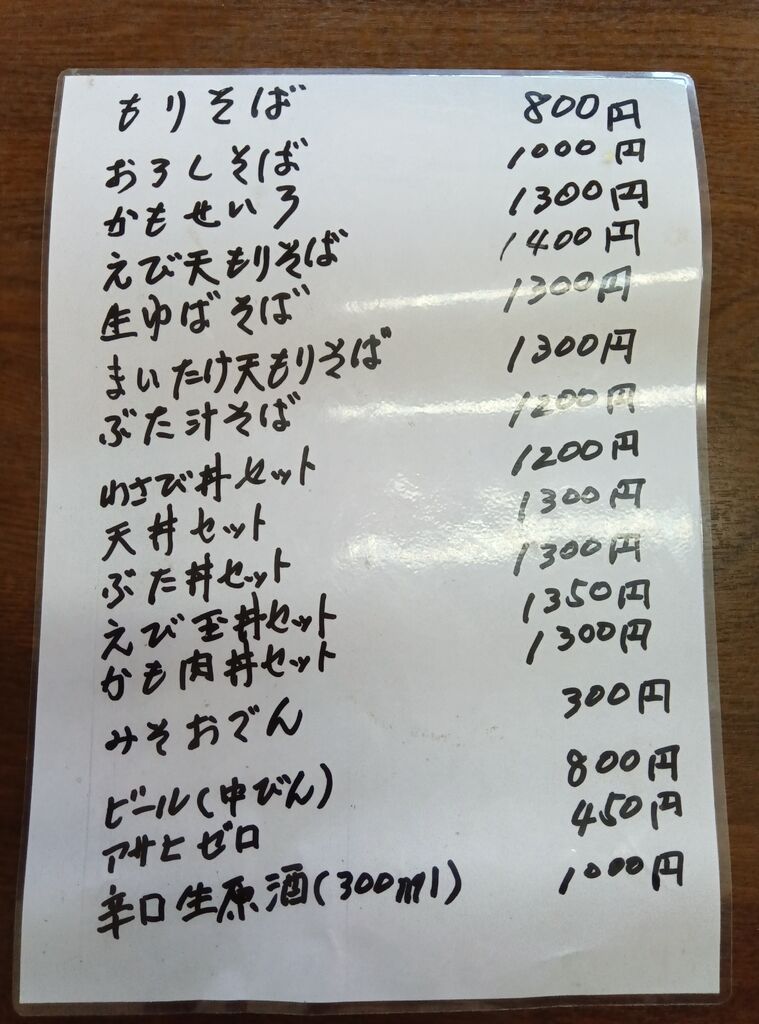 もりそば 800円
おろしそば 1000円
かもせいろ 1300円
えび天もりそば 1400円
生ゆばそば 1300円
まいたけ天もりそば 1300円
ぶた汁そば 1200円
わさび丼セット 1200円
天丼セット 1300円
ぶた丼セット 1300円
えび玉丼セット 1350円
かも肉丼セット 1300円
みそおでん 300円
ビール(中びん) 800円
アサヒゼロ 450円
辛口生原酒(300ml) 1000円